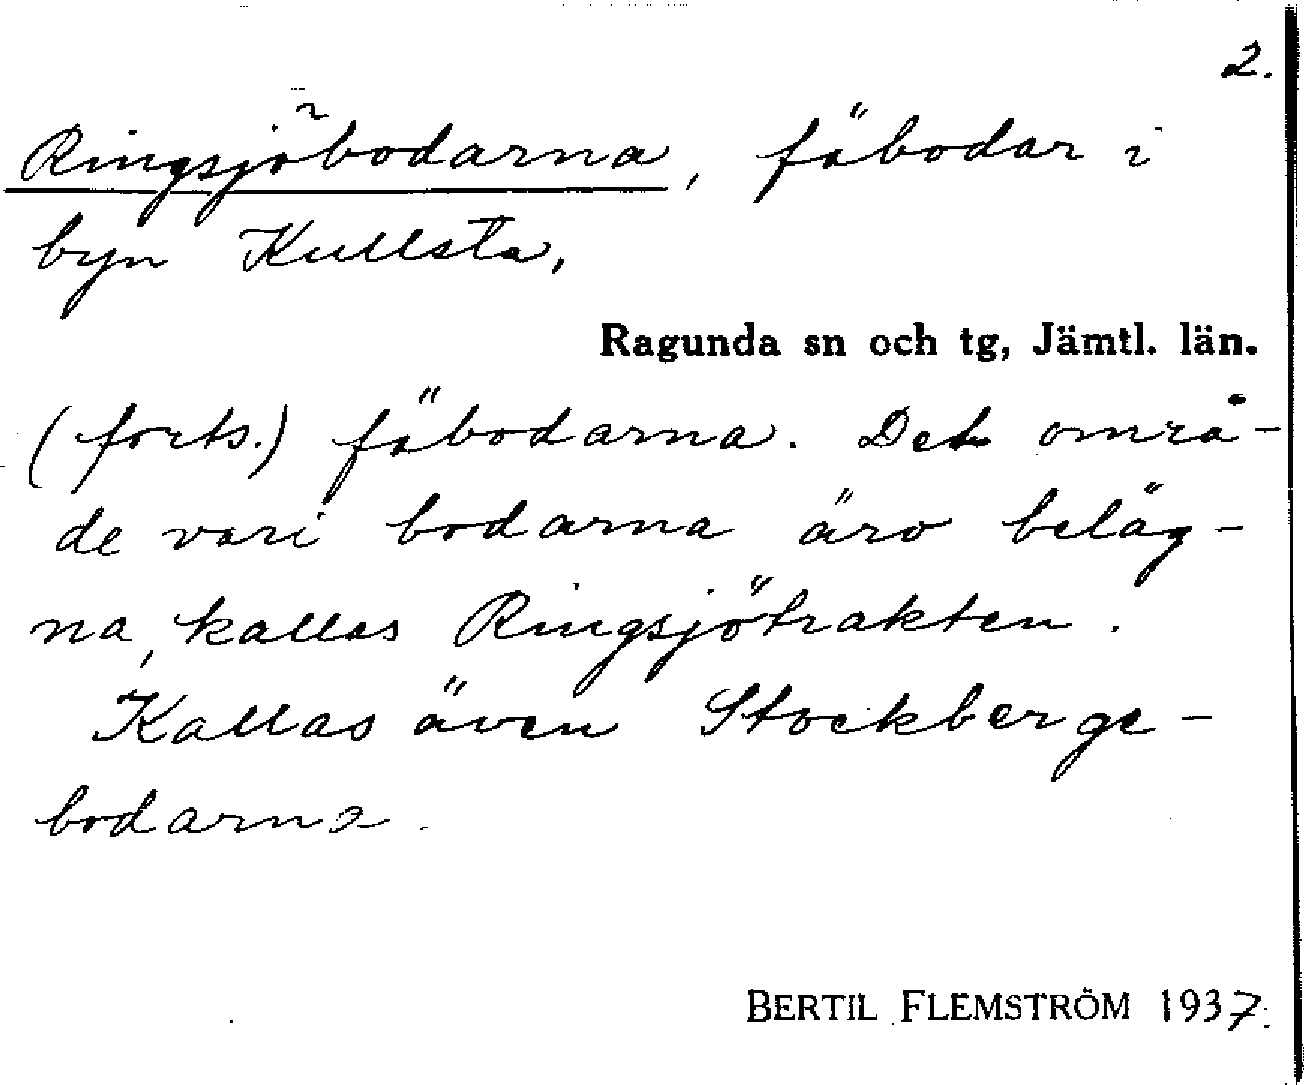 2.
Ringsjöbodarna, fäbodar i
byn Kullsta,
Ragunda sn och tg, Jämtl. län.
(forts.) fäbodarna. Det områ-
de vari bodarna äro beläg-
na, kallas Ringsjötrakten.
Kallas även Stockberge-
bodarna.
BERTIL FLEMSTRÖM 1937.